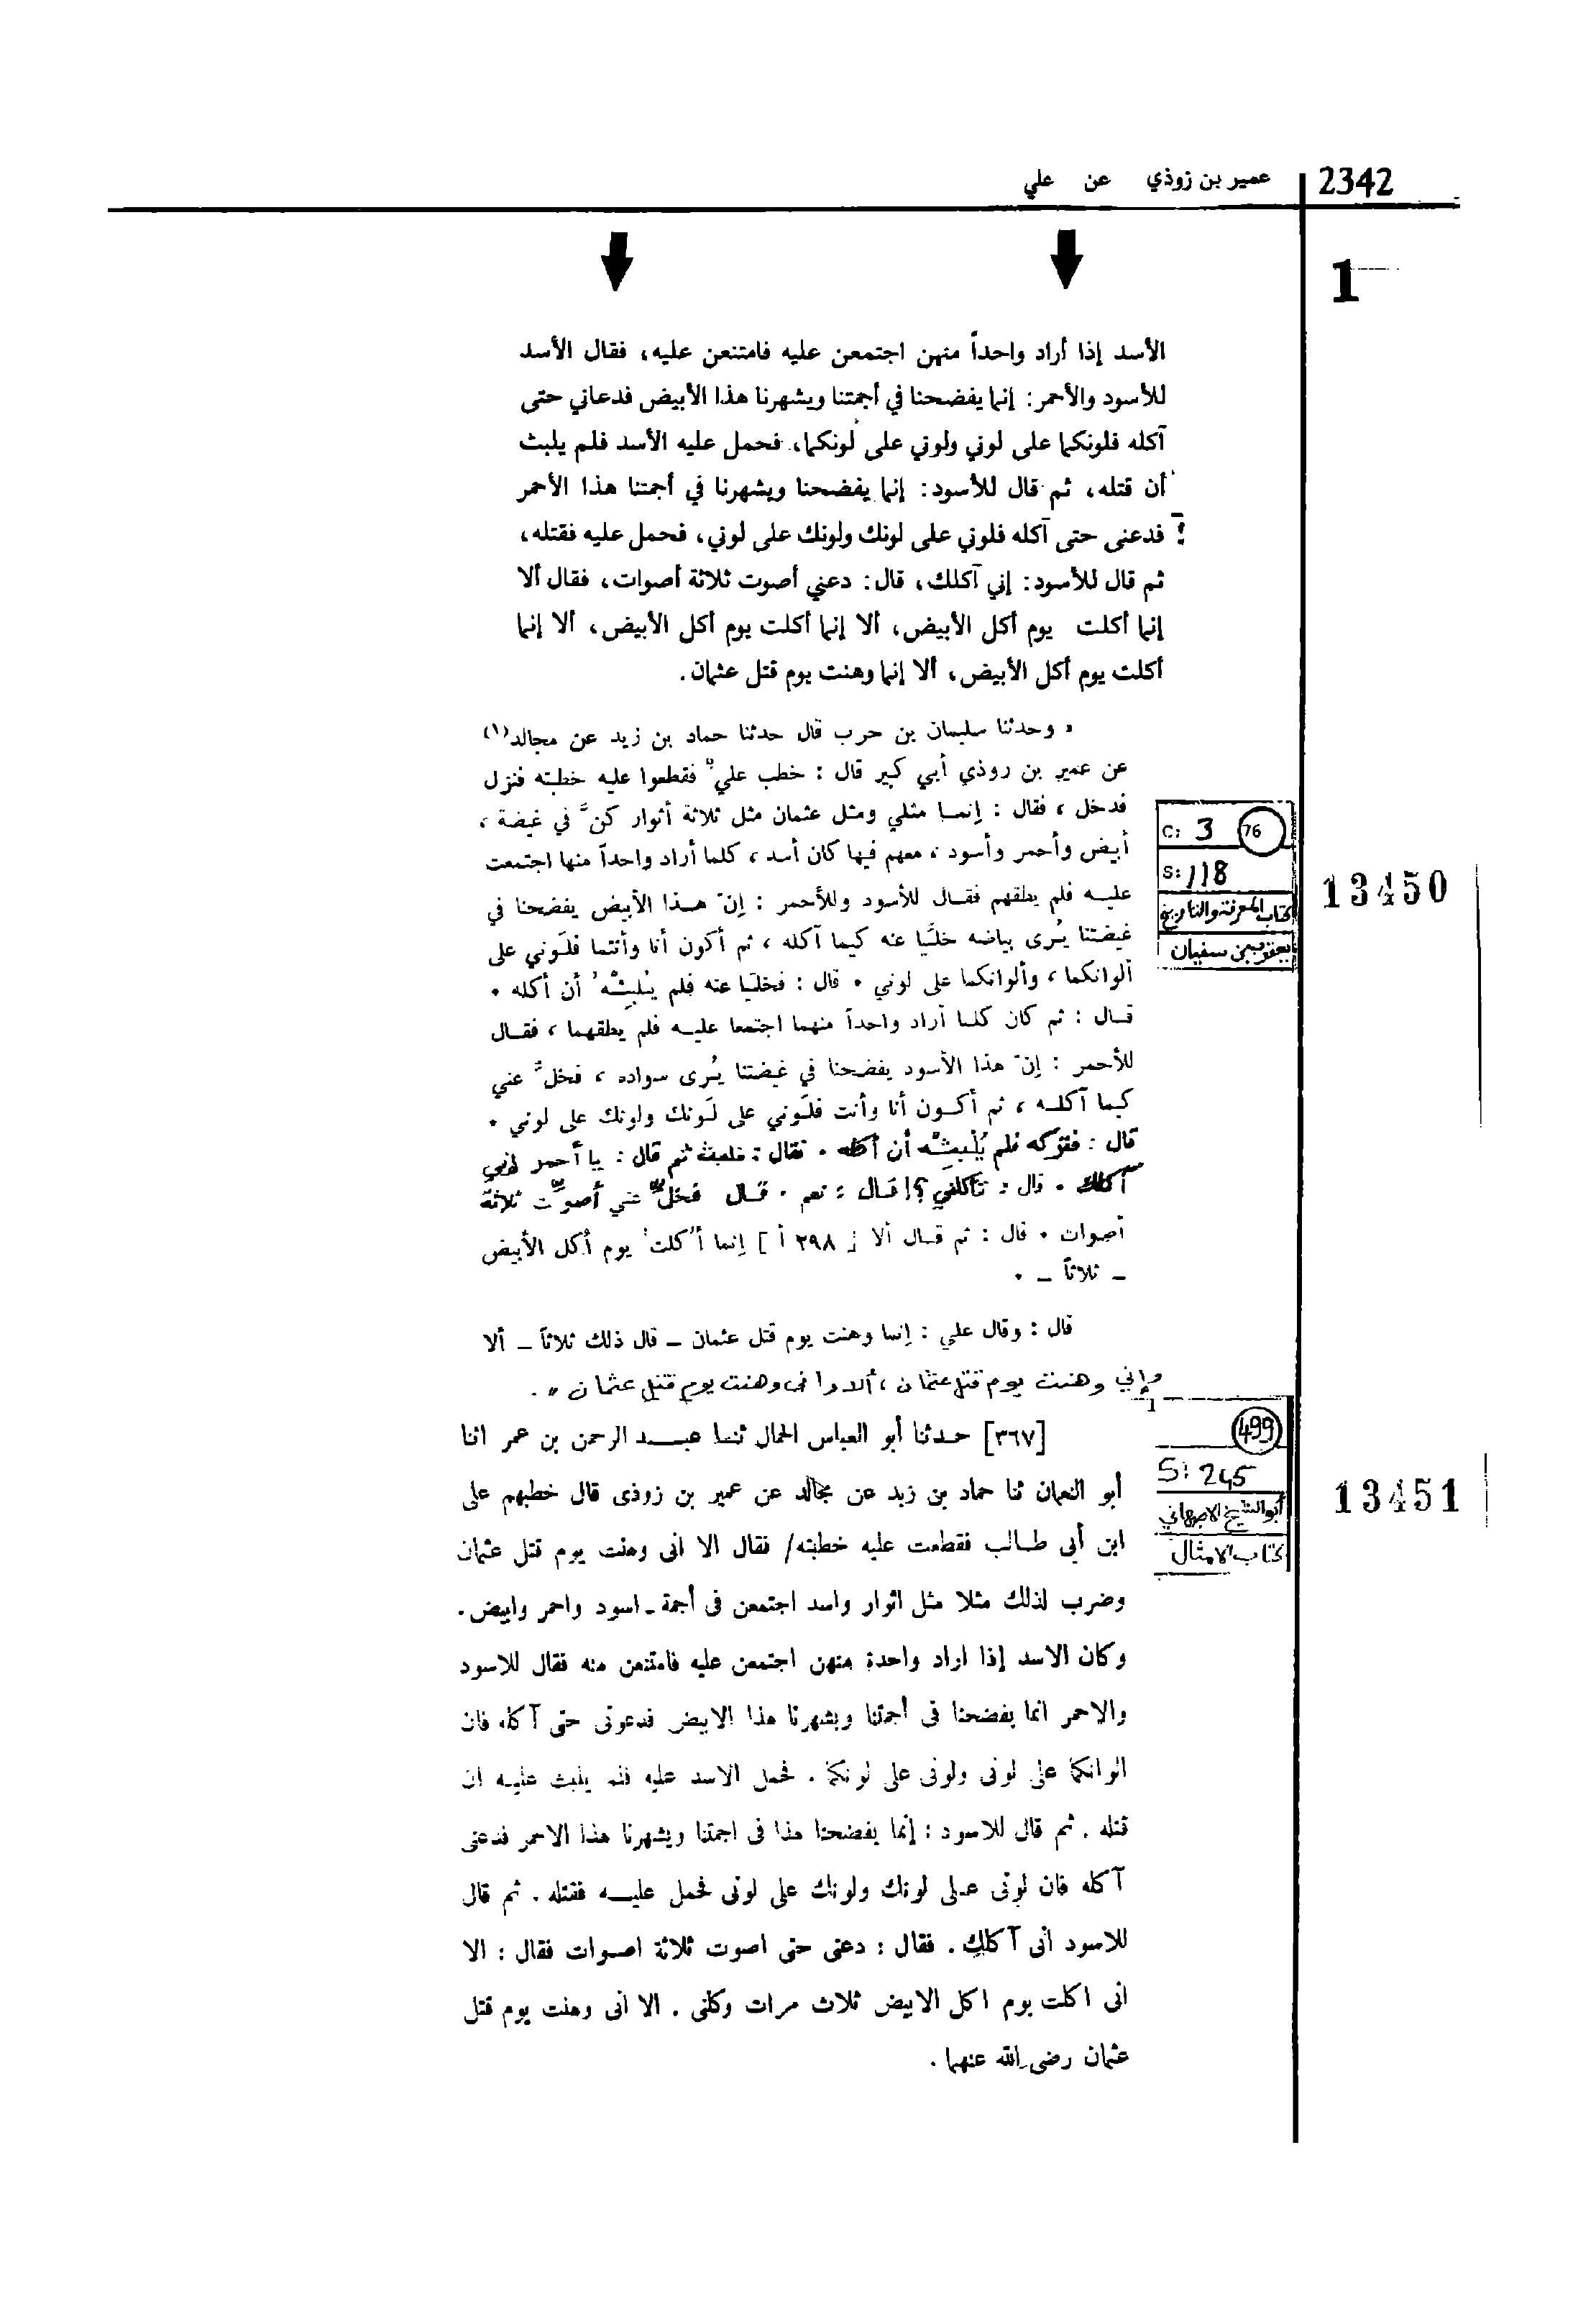 2342
عمير بن زوذي عن علي
1
الأسد إذا أراد واحداً منهن اجتمعن عليه فامتنعن عليه، فقال الأسد
للأسود والأحمر: إنما يفضحنا في أجمتنا ويشهرنا هذا الأبيض فدعاني حتى
آكله فلونكما على لوني ولوني على لونكما، فحمل عليه الأسد فلم يلبث
أن قتله، ثم قال للأسود: إنما يفضحنا ويشهرنا في أجمتنا هذا الأحمر
فدعنى حتى آكله فلوني على لونك ولونك على لوني، فحمل عليه فقتله،
ثم قال للأسود: إني آكلك، قال: دعني أصوت ثلاثة أصوات، فقال ألا
إنما أكلت يوم أكل الأبيض، ألا إنما أكلت يوم أكل الأبيض، ألا إنما
أكلت يوم أكل الأبيض، ألا إنما وهنت يوم قتل عثمان.
« وحدثنا سليمان بن حرب قال حدثنا حماد بن زيد عن مجالد(١)
عن عمير بن روذي أبي كبير قال : خطب علي فقطعوا عليه خطبته فنزل
فدخل ، فقال : إنمــا مثلي ومثل عثمان مثل ثلاثة أثوار كنّ في غيضة ،
أبيض وأحمر وأسود ، معهم فيها كان أسد ، كلما أراد واحداً منها اجتمعت
عليــه فلم يطقهم فقــال للأسود وللأحمر : إنّ هــذا الأبيض يفضحنا في
غيضتنا يُرى بياضه خلّيا عنه كيما آكله ، ثم أكون أنا وأنتما فلَوني على
ألوانكما ، وألوانكما على لوني . قال : فخليا عنه فلم يُلبِثْه أن أكله .
قــال : ثم كان كلما أراد واحداً منهما اجتمعا عليــه فلم يطقهما ، فقــال
للأحمر : إنّ هذا الأسود يفضحنا في غيضتنا يُرى سواده ، فخلّ عني
كيما آكلــه ، ثم أكــون أنا وأنت فلَوني على لَونك ولونك على لوني .
قال : فتركه فلم يُلْبِثْه أن أكله . فقال : فلبث ثم قال : يا أحمر إني
آكلك . قال : تأكلني ؟! قــال : نعم . قــال فخلّ عني أصوِّت ثلاثة
أصوات . قال : ثم قــال ألا [ ٢٩٨ أ ] إنما أُكلت يوم أُكل الأبيض
– ثلاثاً – .
قال : وقال علي : إنما وهنت يوم قتل عثمان – قال ذلك ثلاثاً – ألا
وإني وهنت يوم قتل عثمان ، ألا وإني وهنت يوم قتل عثمان » .
C: 3 76
S: 118
كتاب المعرفة والتاريخ
يعقوب بن سفيان
13450
[٣٦٧] حــدثنا أبو العباس الحمال ثنــا عبــــد الرحمن بن عمر اثنا
أبو النعمان ثنا حماد بن زيد عن مجالد عن عمير بن زوذى قال خطبهم على
ابن أبى طــالب فقطعت عليه خطبته/ فقال الا انى وهنت يوم قتل عثمان
وضرب لذلك مثلا مثل اثوار واسد اجتمعن فى أجمة ـ اسود واحمر وابيض.
وكان الاسد إذا اراد واحدة منهن اجتمعن عليه فامتنعن منه فقال للاسود
والاحمر انما يفضحنا فى أجمتنا ويشهرنا هذا الابيض فدعونى حتى آكله فان
الوانكما على لونى ولونى على لونكما . فحمل الاسد عليه فلم يلبث عليــه ان
قتله . ثم قال للاسود : إنما يفضحنا هذا فى اجمتنا ويشهرنا هذا الاحمر فدعنى
آكله فان لونى عــلى لونك ولونك على لونى فحمل عليــــه فقتله . ثم قال
للاسود انى آكلك . فقال : دعنى حتى اصوت ثلاثة اصــوات فقال : الا
انى اكلت يوم اكل الابيض ثلاث مرات وكلنى . الا انى وهنت يوم قتل
عثمان رضى الله عنهما .
499
S: 245
أبو الشيخ الاصبهاني
كتاب الامثال
13451